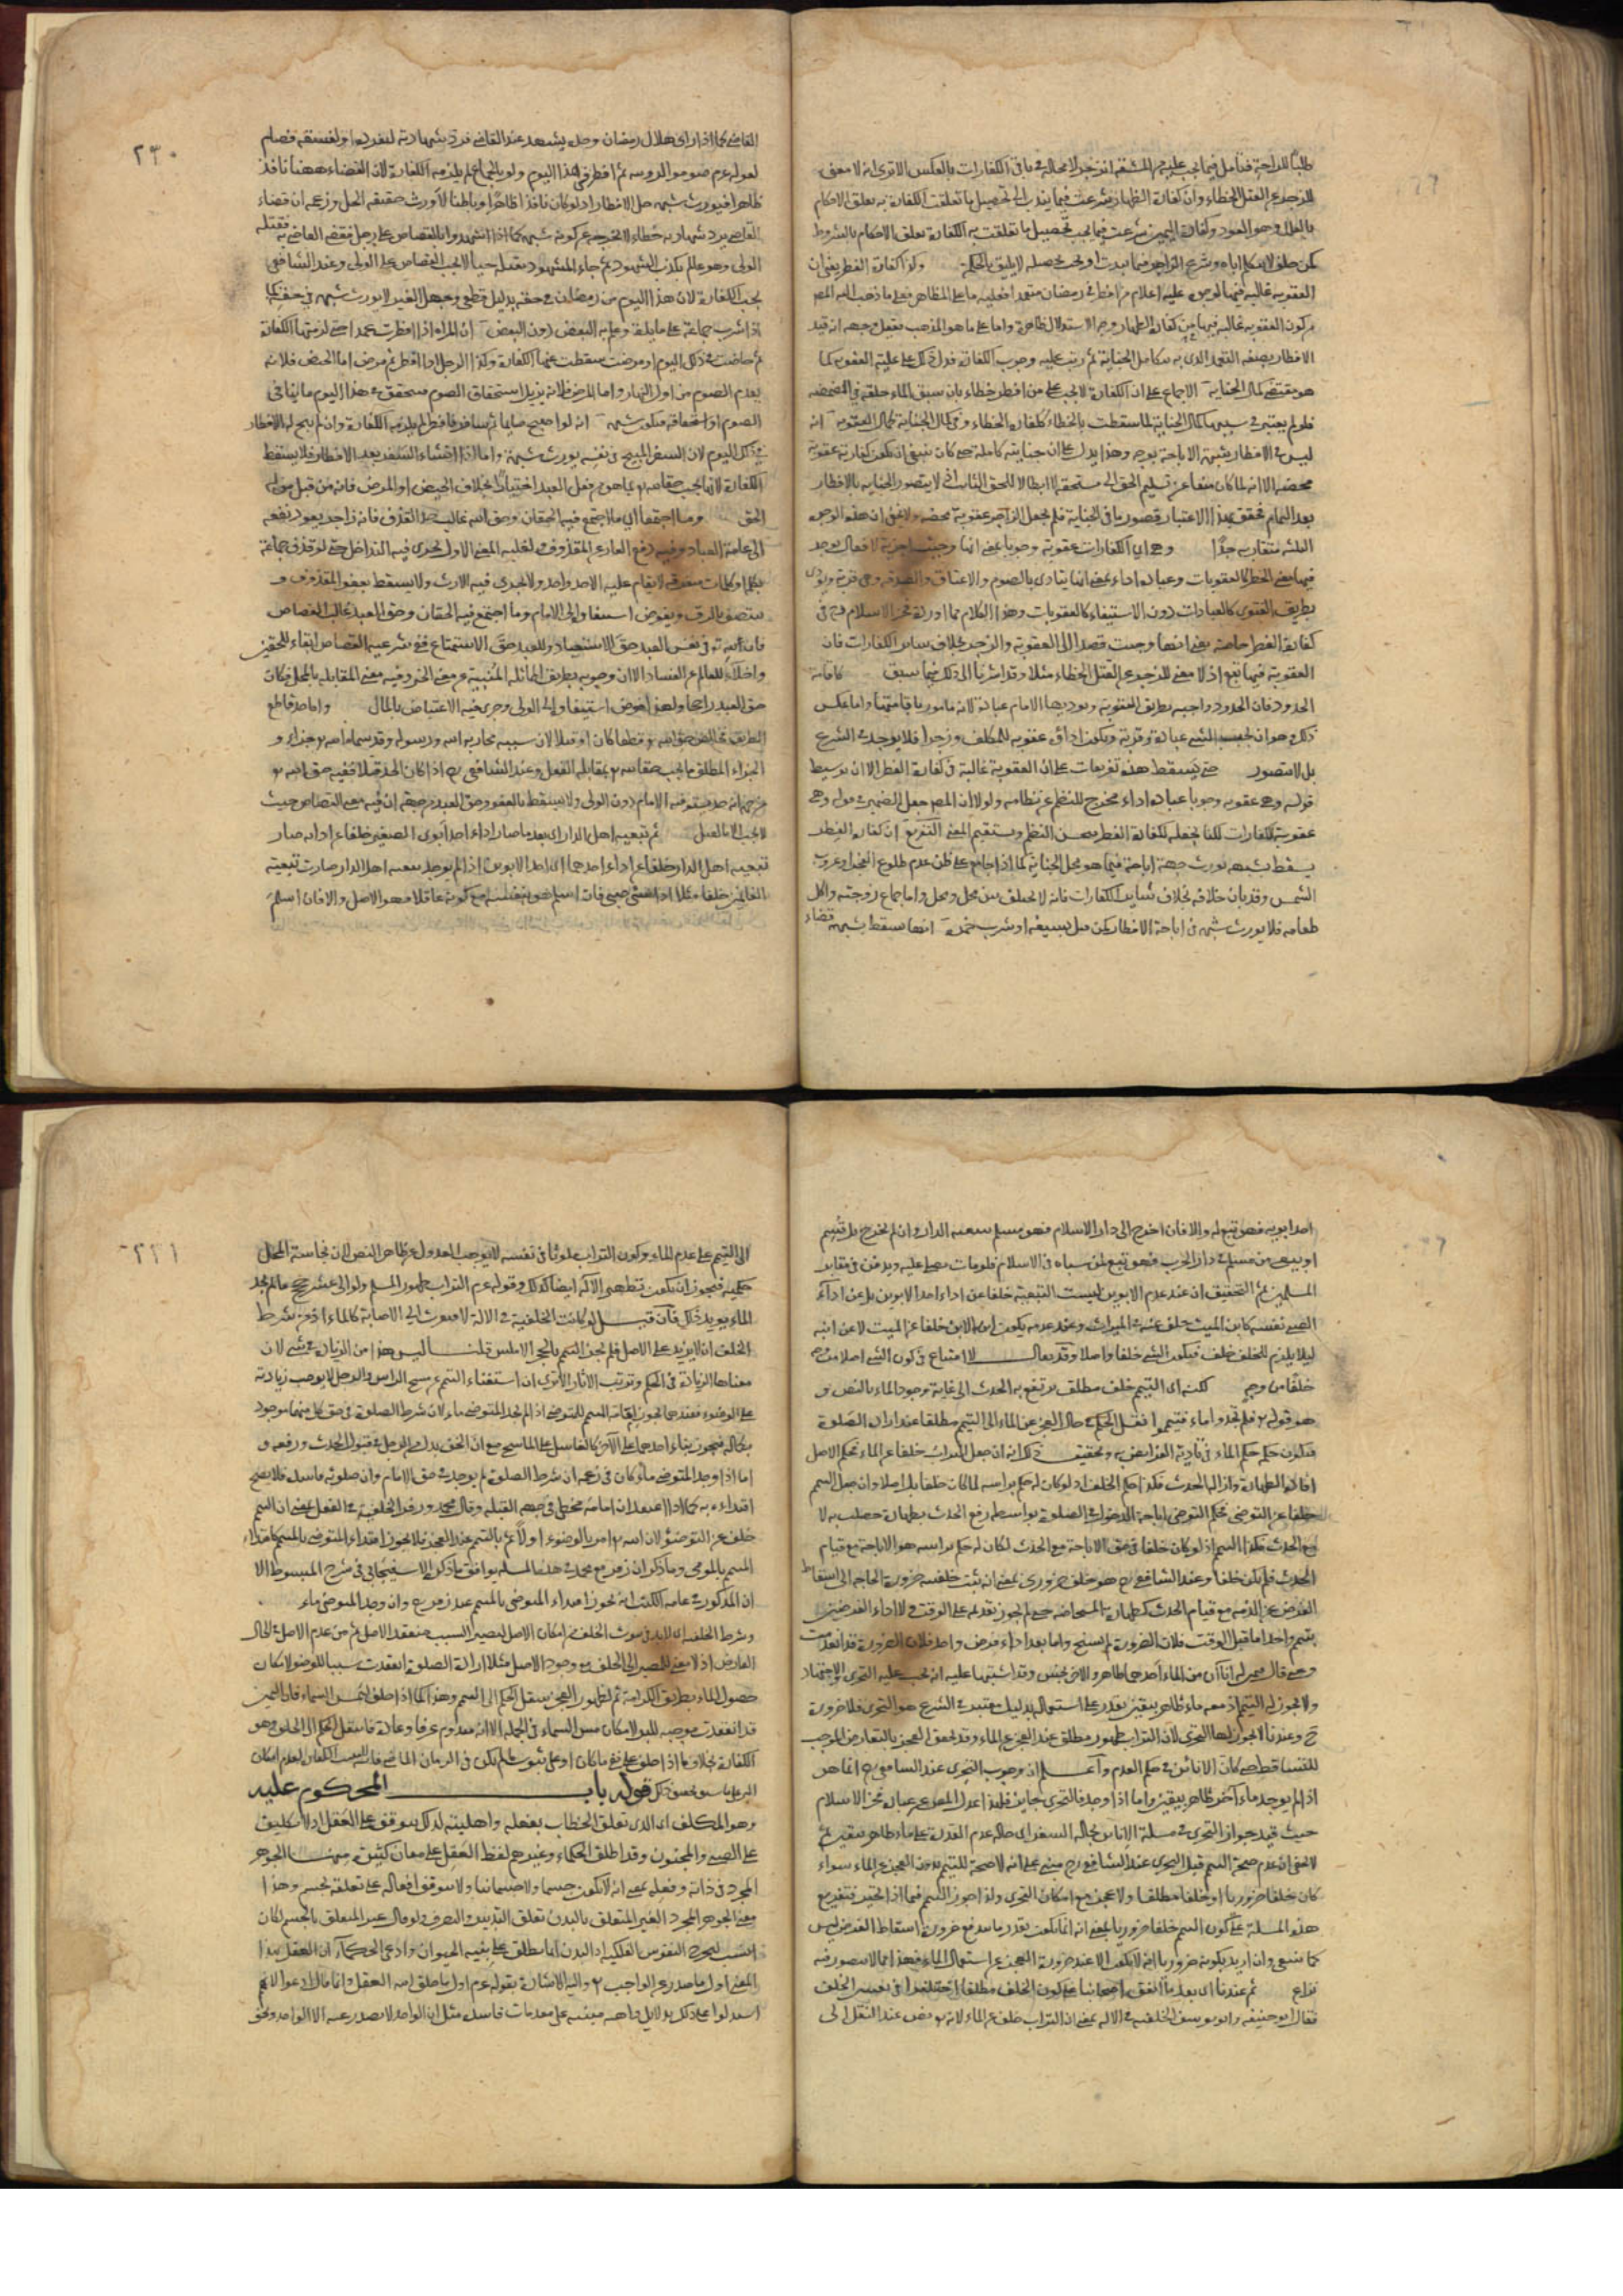 طلبًا للراحة فتأمل فيما يجب عليه من المشقة انزجر لا محالة وباقي الكفارات بالعكس الا ترى انه لا معنى
للزجر عن القتل الخطاء وان كفارة الظهار شرعت فيما يندب الى تحصيل ما تعلقت الكفارة به تعلق الاحكام
بالعلل وهو العود وكفارة اليمين شرعت فيما يجب تحصيل ما تعلقت به الكفارة تعلق الاحكام بالشروط
كمن حلف لا يكلم اباه وشرع الزاجر فيما يندب او يجب تحصيله لا يليق بالحكمة وكذا كفارة الفطر يعني ان
العقوبة غالبة فيها
الافطار بصفة التعمد الذي به يتكامل الجناية ثم رتب عليه وجوب الكفارة فدل ذلك على غلبة العقوبة كما
هو مقتضى كمال الجناية الاجماع على ان الكفارة لا تجب على من افطر خطاء بان سبق الماء حلقه في المضمضة
فلو لم يعتبر في سببها كمال الجناية لما سقطت بالخطاء ككفارة الخطاء وفي كمال الجناية كمال العقوبة انه
ليس في الافطار شبهة الاباحة بوجه وهذا يدل على ان جنايته كاملة حتى كان ينبغي ان تكون كفارته عقوبة
محضة الا انه لما كان منعا عن تسليم الحق الى مستحقه لا ابطالا للحق الثابت اذ لا يتصور الجناية بالافطار
بعد التمام تحقق بهذا الاعتبار قصور ما في الجناية فلم يجعل الزاجر عقوبة محضة ولا يخفى ان هذه الوجوه
الثلثة متقاربة جدًا وهي اي الكفارات عقوبة وجوبا يعني انها وجبت اجزية لافعال يوجد
فيها معنى الحظر كالعقوبات وعبادة اداء يعني انها يتادى بالصوم والاعتاق والصدقة وهي قربة ويؤدى
بطريق الفتوى كالعبادات دون الاستيفاء كالعقوبات وهذا الكلام مما اورده فخر الاسلام في
كفارة الفطر خاصة يعني انها وجبت قصدا الى العقوبة والزجر بخلاف سائر الكفارات فان
العقوبة فيها تبع اذ لا معنى للزجر عن القتل الخطاء مثلا وقد اشرنا الى ذلك فيما سبق كاقامة
الحدود فان الحدود واجبة بطريق العقوبة ويؤديها الامام عبادة لانه مامور باقامتها واما عكس
ذلك وهو ان يجب الشيء عبادة وقربة ويكون اداؤه عقوبة للمكلف وزجرا فلا يوجد في الشرع
بل لا يتصور حتى يسقط هذه تفريعات على ان العقوبة غالبة في كفارة الفطر الا ان توسيط
قوله وهي عقوبة وجوبا عبادة اداء مخرج للنظم عن نظامه ولولا ان المص جعل الضمير في قوله وهي
عقوبة للكفارات لكنا نجعله لكفارة الفطر يحسن النظم ويستقيم المعنى التفريع ان كفارة الفطر
يسقط بشبهة تورث جهة اباحة فيما هو محل الجناية كما اذا جامع على ظن عدم طلوع الفجر او غروب
الشمس وقد بان خلافه بخلاف سائر الكفارات فانه لا يختلف بين محل ومحل واما جماع زوجته واكل
طعامه فلا يورث شبهة في اباحة الافطار كمن قتل بسيفه او شرب خمره انها سقط بشبهة قضاء
٢٣٠
القاضي كما اذا راى هلال رمضان وحده فشهد عند القاضي فرد شهادته لتفرده او لفسقه فصام
لقوله عم صوموا لرؤيته ثم افطر في هذا اليوم ولو بالجماع لم يلزمه الكفارة لان القضاء ههنا نافذ
ظاهرا فيورث شبهة حل الافطار اذ لو كان نافذا ظاهرا وباطنا لاورث حقيقة الحل وزعمه ان قضاء
القاضي برد شهادته خطاء لا يخرجه عن كونه شبهة كما اذا شهدوا بالقصاص على رجل فقضى القاضي به فقتله
الولي وهو عالم بكذب الشهود ثم جاء المشهود بقتله حيا لا يجب القصاص على الولي وعند الشافعي
يجب الكفارة لان هذا اليوم من رمضان في حقه بدليل قطعي وجهل الغير لا يورث شبهة في حقه كما
اذا شرب جماعة على مايدة وعلم به البعض دون البعض ان المراة اذا افطرت عمدا حتى لزمتها الكفارة
ثم حاضت في ذلك اليوم او مرضت سقطت عنها الكفارة وكذا الرجل اذا افطر ثم مرض اما الحيض فلانه
يعدم الصوم من اول النهار واما المرض فلانه يزيل استحقاق الصوم فيتحقق في هذا اليوم ما ينافي
الصوم او استحقاقه فيكون شبهة انه لو اصبح صايما ثم سافر فافطر لم يلزمه الكفارة وان لم يبح له الافطار
في ذلك اليوم لان السفر المبيح في نفسه يورث شبهة واما اذا انشاء السفر بعد الافطار فلا يسقط
الكفارة لانها تجب حقا لله تع بما هو من فعل العبد اختيارًا بخلاف الحيض او المرض فانه من قبل من له
الحق وما اجتمعا اي ما اجتمع فيه الحقان وحق الله غالب حد القذف فانه زاجر يعود نفعه
الى عامة العباد وفيه دفع العار عن المقذوف ولغلبة المعنى الاول يجري فيه التداخل حتى لو قذف جماعة
بكلمة او كلمات متفرقة لا يقام عليه الا حد واحد ولا يجري فيه الارث ولا يسقط بعفو المقذوف و
يتنصف بالرق ويفوض استيفاؤه الى الامام وما اجتمع فيه الحقان وحق العبد غالب القصاص
فان لله تع في نفس العبد حق الاستعباد وللعبد حق الاستمتاع ففي شرعية القصاص ابقاء للحقين
واخلاء للعالم عن الفساد الا ان وجوبه بطريق المماثلة المنبية عن معنى الجبر وفيه معنى المقابلة بالمحل فكان
حق العبد راجحا ولهذا فوض استيفاؤه الى الولي وجرى فيه الاعتياض بالمال واما حد قاطع
الطريق فخالص حق الله تع قطعا كان او قتلا لان سببه محاربة الله ورسوله وقد سماه الله تع جزاء و
الجزاء المطلق ما يجب حقا لله تع بمقابلة الفعل وعند الشافعي رح اذا كان الحد قتلا ففيه حق الله تع
من جهة انه حد يستوفيه الامام دون الولي ولا يسقط بالعفو وحق العبد من جهة ان فيه معنى القصاص حيث
لا يجب الا بالقتل ثم تبعية اهل الدار اي بعد ما صار اداء احد ابوي الصغير خلفا عن ادائه صار
تبعية اهل الدار خلفا عن اداء احدهما اي احد الابوين اذا لم يوجد تبعية اهل الدار صارت تبعية
الغانمين خلفا مثلا اذا سبي صبي فان اسلم هو بنفسه مع كونه عاقلا فهو الاصل والا فان اسلم
احد ابويه فهو تبع له والا فان اخرج الى دار الاسلام فهو مسلم بتبعية الدار وان لم يخرج بل قسم
او بيع من مسلم في دار الحرب فهو تبع لمن سباه في الاسلام فلو مات يصلى عليه ويدفن في مقابر
المسلمين ثم التحقيق ان عند عدم الابوين ليست التبعية خلفا عن اداء احد الابوين بل عن اداء
الصبي نفسه كابن الميت خلف عنه في الميراث وعند عدمه يكون ابن الابن خلفا عن الميت لا عن ابنه
ليلا يلزم للخلف خلف فيكون الشيء خلفا واصلا وقد يقال لا امتناع في كون الشيء اصلا من وجه
خلفا من وجه لكنه اي التيمم خلف مطلق يرتفع به الحدث الى غاية وجود الماء بالنص و
هو قوله تع فلم تجدوا ماء فتيمموا انقل الحكم في حال العجز عن الماء الى التيمم مطلقا عند ارادة الصلوة
فيكون حكمه حكم الماء في تأدية الفرايض به وتحقيق ذلك انه ان جعل التراب خلفا عن الماء فحكم الاصل
افادة الطهارة وازالة الحدث فكذا حكم الخلف اذ لو كان له حكم براسه لما كان خلفا بل اصلا وان جعل التيمم
خلفا عن التوضي فحكم التوضي اباحة الدخول في الصلوة بواسطة رفع الحدث بطهارة حصلت به لا
مع الحدث فكذا التيمم اذ لو كان خلفا في حق الاباحة مع الحدث لكان له حكم براسه هو الاباحة مع قيام
الحدث فلم يكن خلفا وعند الشافعي رح هو خلف ضروري بمعنى انه ثبت خلفيته ضرورة الحاجة الى اسقاط
الفرض عن الذمة مع قيام الحدث كطهارة المستحاضة حتى لم يجوز تقديمه على الوقت ولا اداء الفرضين
بتيمم واحد اما قبل الوقت فلان الضرورة لم تجئ واما بعد اداء فرض واحد فلان الضرورة قد انعدمت
ولا يجوز له التيمم اذ معه ماء طاهر بيقين يقدر على استعماله بدليل معتبر في الشرع هو التحري فلا ضرورة
ح وعندنا لا يجوز له التحري لان التراب طهور مطلق عند العجز عن الماء وقد تحقق العجز بالتعارض الموجب
للتساقط حتى كان الانائين في حكم العدم واعلم ان وجوب التحري عند الشافعي رح انما هو
اذا لم يوجد ماء آخر طاهر بيقين واما اذا وجد فالتحري جايز فلهذا عدل المص عن عبارة فخر الاسلام
حيث قيد جواز التحري في مسئلة الاناين بحالة السفر اي حالة عدم القدرة على ماء طاهر بيقين ثم
لا يخفى ان عدم صحة التيمم قبل التحري عند الشافعي رح مبني على انه لا صحة للتيمم بدون العجز عن الماء سواء
كان خلفا ضروريا او خلفا مطلقا ولا عجز مع امكان التحري ولذا جوز التيمم فيما اذا تحير فتفريع
هذه المسئلة على كون التيمم خلفا ضروريا بمعنى انه انما يكون بقدر ما يندفع ضرورة اسقاط الفرض ليس
كما ينبغي وان اريد بكونه ضروريا انه لا يكون الا عند ضرورة العجز عن استعمال الماء فهذا مما لا يتصور فيه
نزاع ثم عندنا اي بعد ما اتفق اصحابنا على كون الخلف مطلقا اختلفوا في تعيين الخلف
فقال ابو حنيفة وابو يوسف الخلفية في الالة بمعنى ان التراب خلف عن الماء لانه تع نص عند النقل الى
٢٣١
الى التيمم على عدم الماء وكون التراب ملوثا في نفسه لا يوجب العدول عن ظاهر النص لان نجاسة المحل
حكمية فيجوز ان يكون تطهير الالة ايضا كذلك وقوله عم التراب طهور المسلم ولو الى عشر حجج ما لم يجد
الماء يؤيد ذلك فان قيل لو كانت الخلفية في الالة لافتقرت الى الاصابة كالماء اذ من شرط
الخلف ان لا يزيد على الاصل فلم يجز التيمم بالحجر الاملس قلنا ليس هذا من الزيادة في شيء لان
معناها الزيادة في الحكم وترتب الاثار الا ترى ان استغناء التيمم عن مسح الراس والرجل لا يوجب زيادته
على الوضوء فعندهما يجوز امامة المتيمم للمتوضئ اذا لم يجد المتوضئ ماء لان شرط الصلوة في حق كل منهما موجود
بكماله فيجوز بناء احدهما على الاخر كالغاسل على الماسح مع ان الخف بدل من الرجل في قبول الحدث ورفعه و
اما اذا وجد المتوضئ ماء كان في زعمه ان شرط الصلوة لم يوجد في حق الامام وان صلوته فاسدة فلا يصح
اقتداءه به كما اذا اعتقد ان امامه مخطئ في جهة القبلة وقال محمد وزفر الخلفية في الفعل بمعنى ان التيمم
خلف عن التوضؤ لان الله تع امر بالوضوء اولًا ثم بالتيمم عند العجز فلا يجوز اقتداء المتوضئ بالمتيمم كاقتداء
المتيمم بالمومي وما ذكر ان زفر مع محمد في هذه المسئلة يوافق ما ذكره الاسبيجابي في شرح المبسوط الا
ان المذكور في عامة الكتب انه يجوز اقتداء المتوضئ بالمتيمم عند زفر رح وان وجد المتوضئ ماء
وشرط الخلفية اي لا بد في ثبوت الخلف من امكان الاصل ليصير السبب منعقدا للاصل ثم من عدم الاصل في الحال
لعارض اذ لا معنى للمصير الى الخلف مع وجود الاصل مثلا ارادة الصلوة انعقدت سببا للوضوء لامكان
حصول الماء بطريق الكرامة ثم لظهور العجز ينتقل الحكم الى التيمم وهذا كما اذا حلف ليمس السماء فان اليمين
قد انعقدت موجبة للبر لامكان مس السماء في الجملة الا انه معدوم عرفا وعادة فانتقل الحكم الى الخلف وهو
الكفارة بخلاف ما اذا حلف على نفي ما كان او على ثبوت ما لم يكن في الزمان الماضي
قوله باب المحكوم عليه
وهو المكلف اي الذي تعلق الخطاب بفعله واهليته لذلك يتوقف على العقل اذ لا تكليف
على الصبي والمجنون وقد اطلق الحكماء وغيرهم لفظ العقل على معان كثيرة منها الجوهر
المجرد في ذاته وفعله بمعنى انه لا يكون جسما ولا جسمانيا ولا يتوقف افعاله على تعلقه بجسم وهذا
معنى الجوهر المجرد الغير المتعلق بالبدن تعلق التدبير والتصرف ولو قال غير المتعلق بالجسم لكان
انسب ليخرج النفوس الفلكية اذ البدن انما يطلق على بنية الحيوان وادعى الحكماء ان العقل بهذا
المعنى اول ما صدر عن الواجب تع واليه الاشارة بقوله عم اول ما خلق الله العقل وانما قال ادعوا لانهم
استدلوا على ذلك بدلايل واهية مبنية على مقدمات فاسدة مثل ان الواحد لا يصدر عنه الا الواحد ونحو